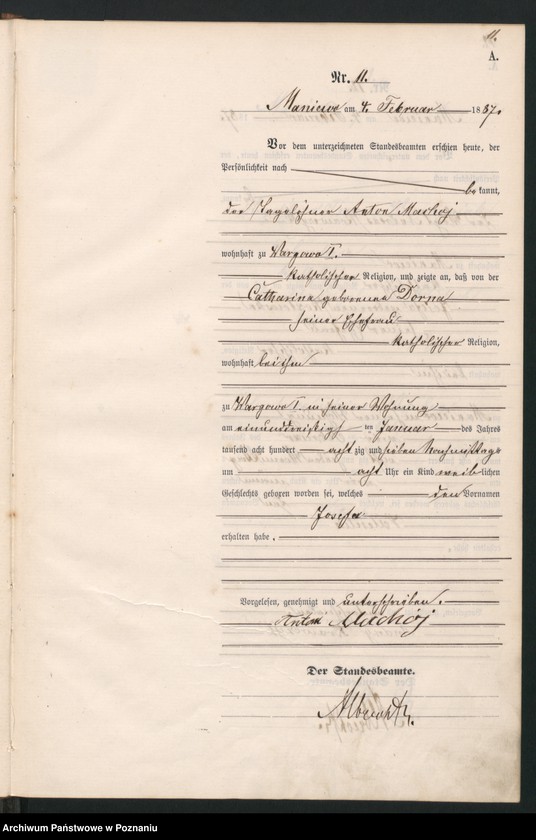 11.
A.
Nr. 11.
Maniewo am 4. Februar 1887.
Vor dem unterzeichneten Standesbeamten erschien heute, der
Persönlichkeit nach
bekannt,
der Tagelöhner Anton Machoj
wohnhaft zu Wargowo I.
katholischer Religion, und zeigte an, daß von der
Catharina geborenen Dorna
seiner Ehefrau
katholischer Religion,
wohnhaft bei ihm
zu Wargowo I. in seiner Wohnung
am einunddreißigsten Januar des Jahres
tausend acht hundert achtzig und sieben Nachmittags
um acht Uhr ein Kind weiblichen
Geschlechts geboren worden sei, welches den Vornamen
Josefa
erhalten habe.
Vorgelesen, genehmigt und unterschrieben.
Anton Machój
Der Standesbeamte.
Albrecht.
Archiwum Państwowe w Poznaniu